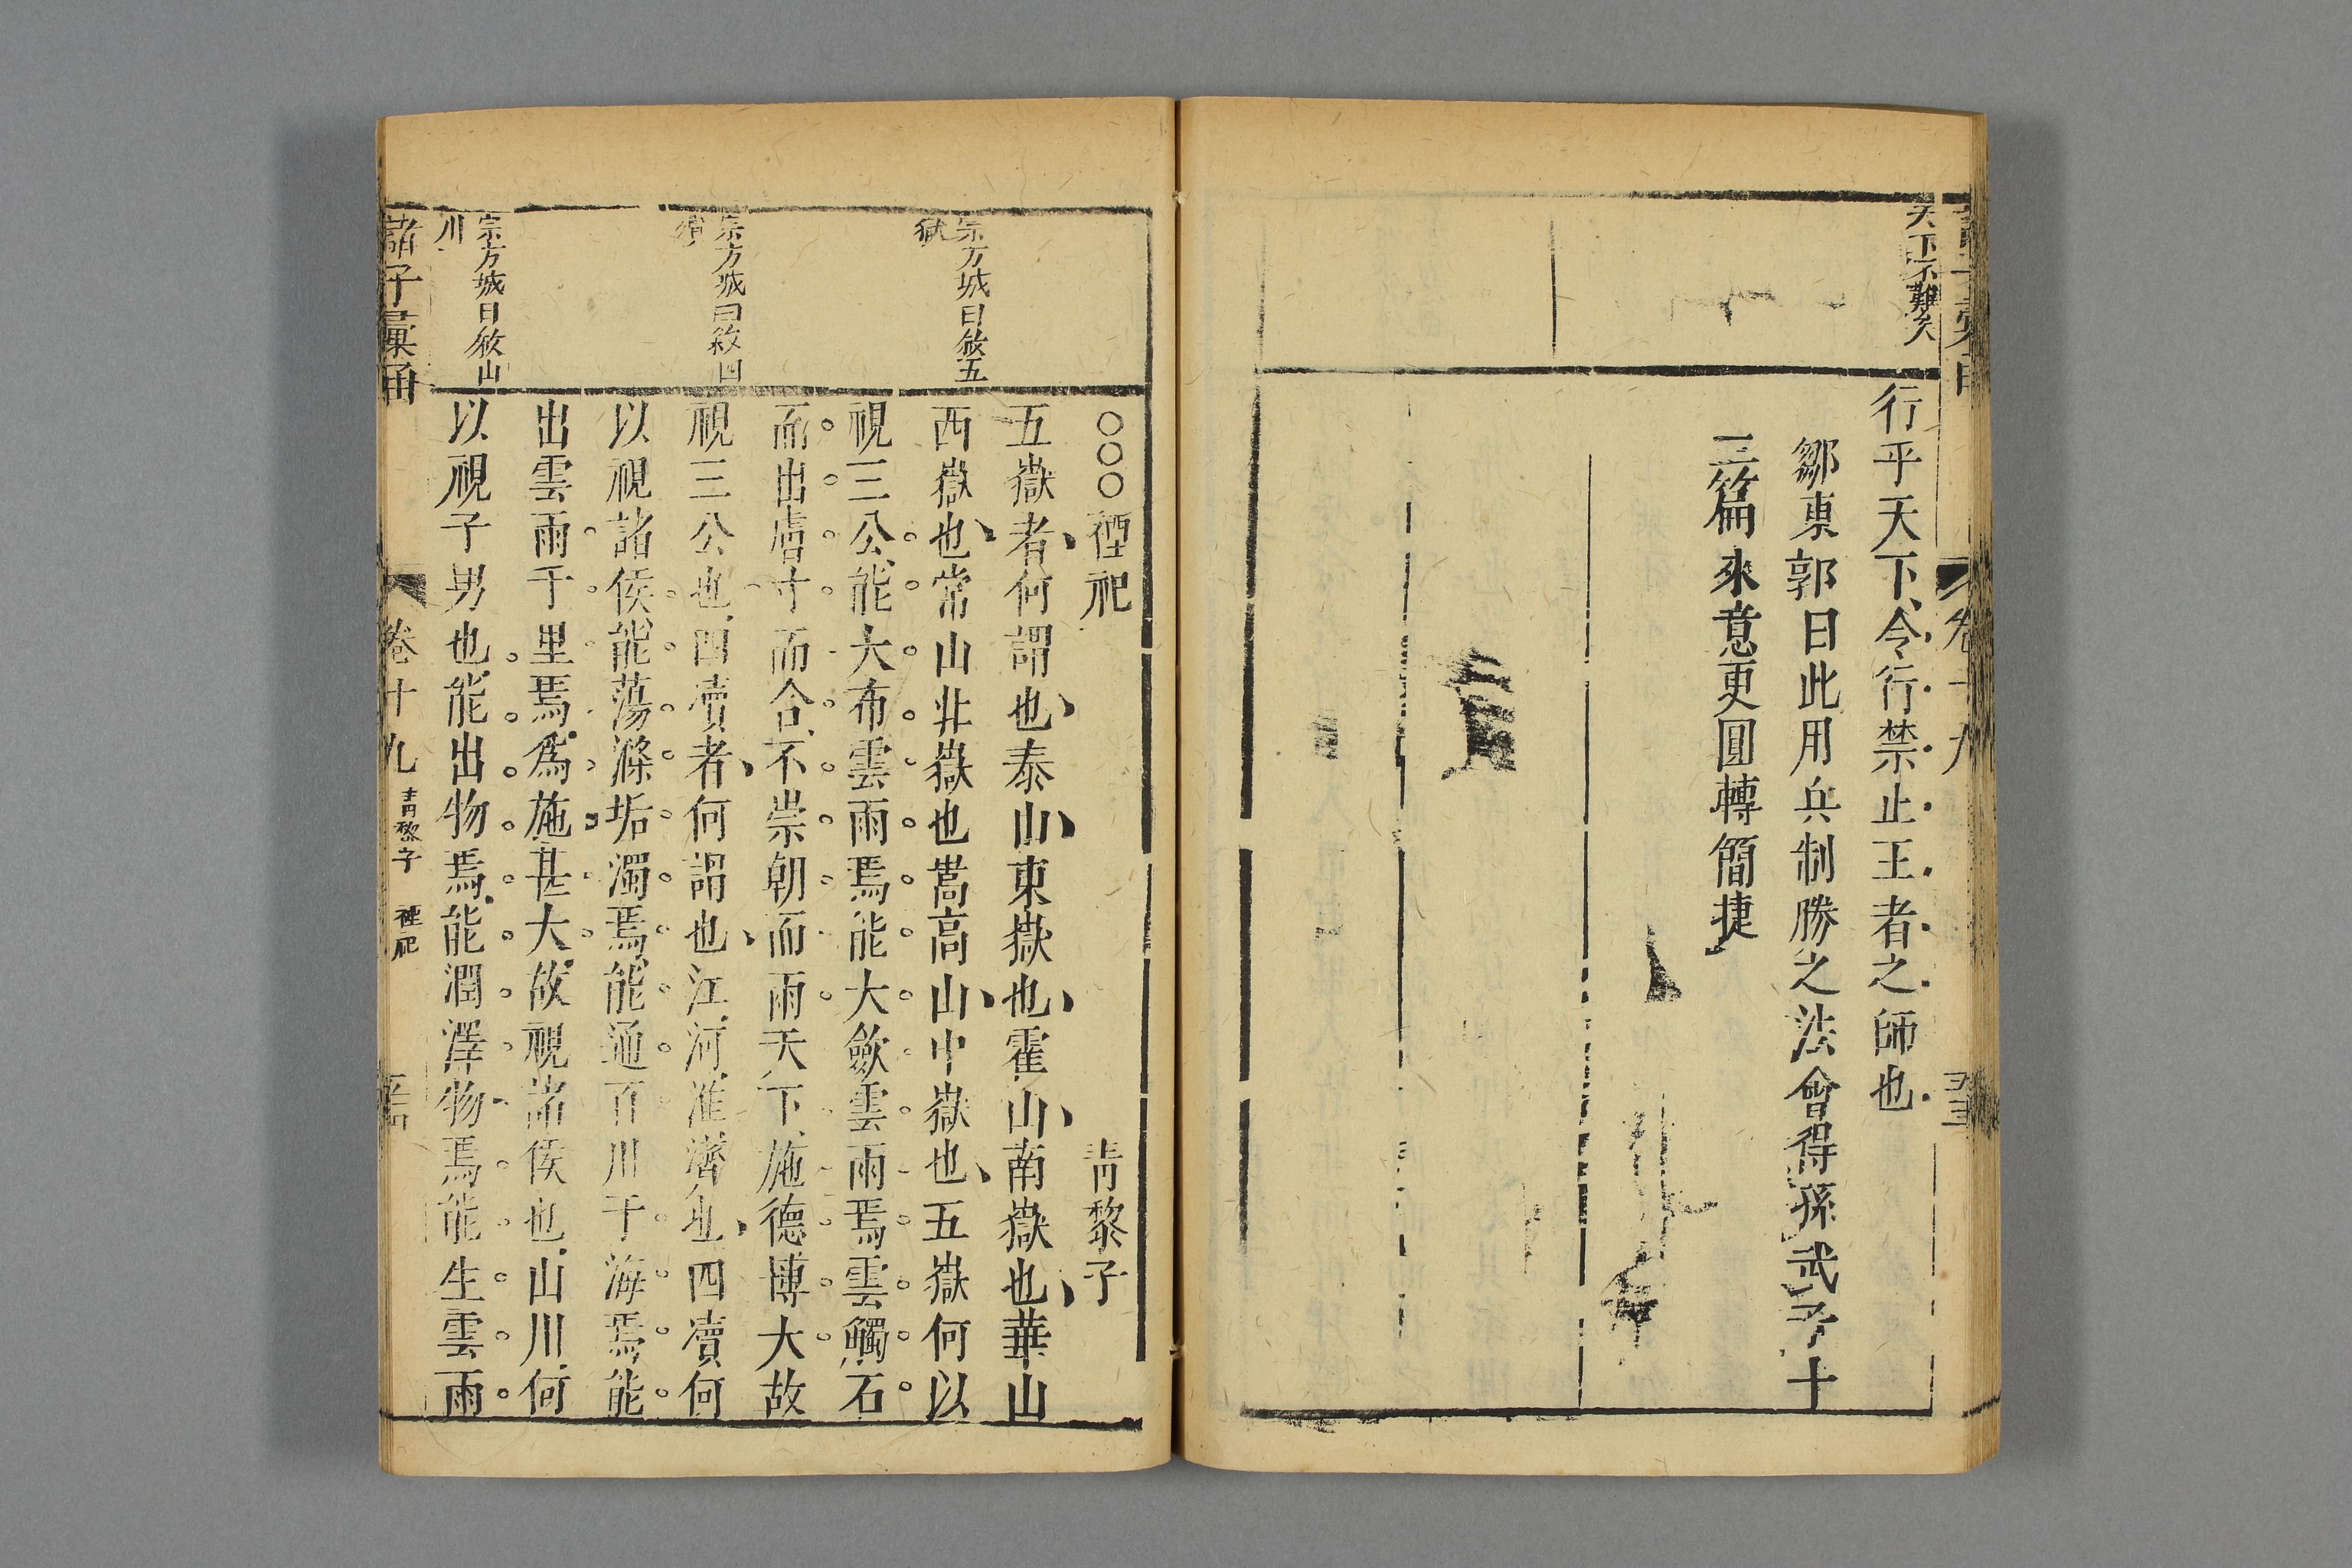 天下不難矣
行乎天下令行禁止王者之師也
鄒東郭曰此用兵制勝之法會得孫武子十
三篇來意更圓轉簡捷
卷十九
○○○禋祀 青黎子
宗方城曰敘五
嶽
五嶽者何謂也泰山東嶽也霍山南嶽也華山
西嶽也常山北嶽也嵩高山中嶽也五嶽何以
視三公能大布雲雨焉能大斂雲雨焉雲觸石
而出膚寸而合不崇朝而雨天下施德博大故
宗方城曰敘四
瀆
視三公也四瀆者何謂也江河淮濟也四瀆何
以視諸侯能蕩滌垢濁焉能通百川于海焉能
出雲雨千里焉為施甚大故視諸侯也山川何
宗方城曰敘山
川
以視子男也能出物焉能潤澤物焉能生雲雨
諸子彙函 卷十九 青黎子 禋祀